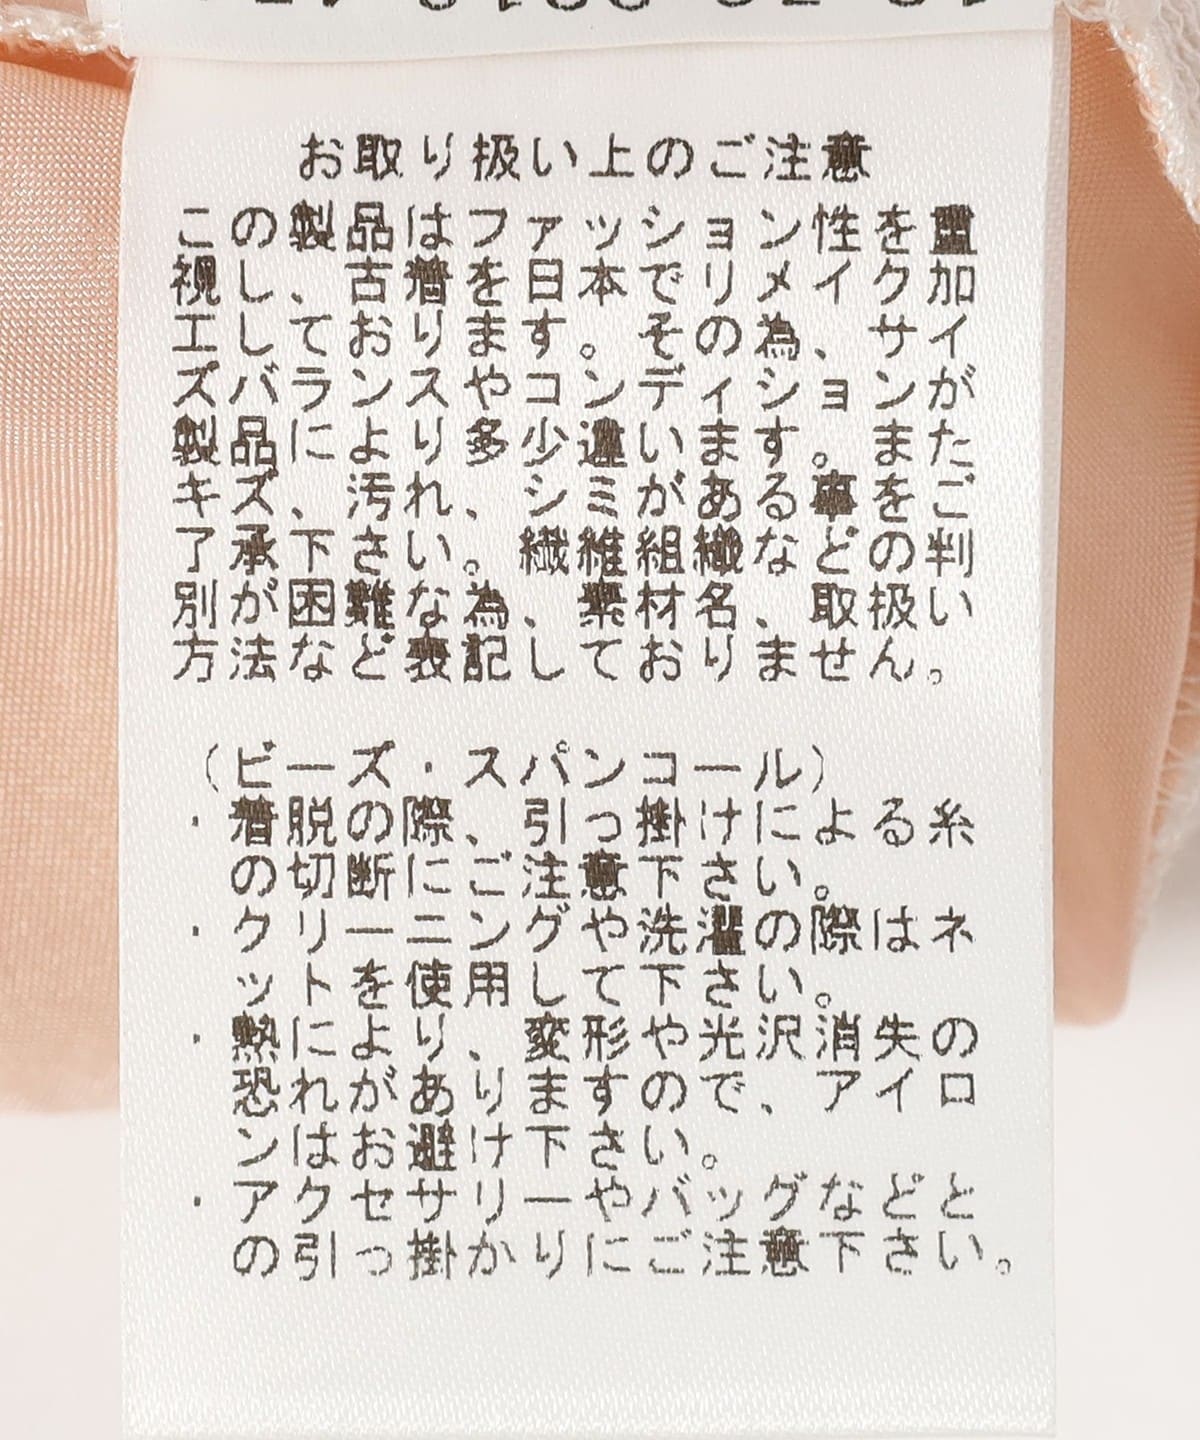 お取り扱い上のご注意
この製品はファッション性を重
視し、古着を日本でリメイク加
工しております。その為、サイ
ズバランスやコンディションが
製品により多少違います。また
キズ、汚れ、シミがある事をご
了承下さい。繊維組織などの判
別が困難な為、素材名、取扱い
方法など表記しておりません。
（ビーズ・スパンコール）
・着脱の際、引っ掛けによる糸
の切断にご注意下さい。
・クリーニングや洗濯の際はネ
ットを使用して下さい。
・熱により、変形や光沢消失の
恐れがありますので、アイロ
ンはお避け下さい。
・アクセサリーやバッグなどと
の引っ掛かりにご注意下さい。